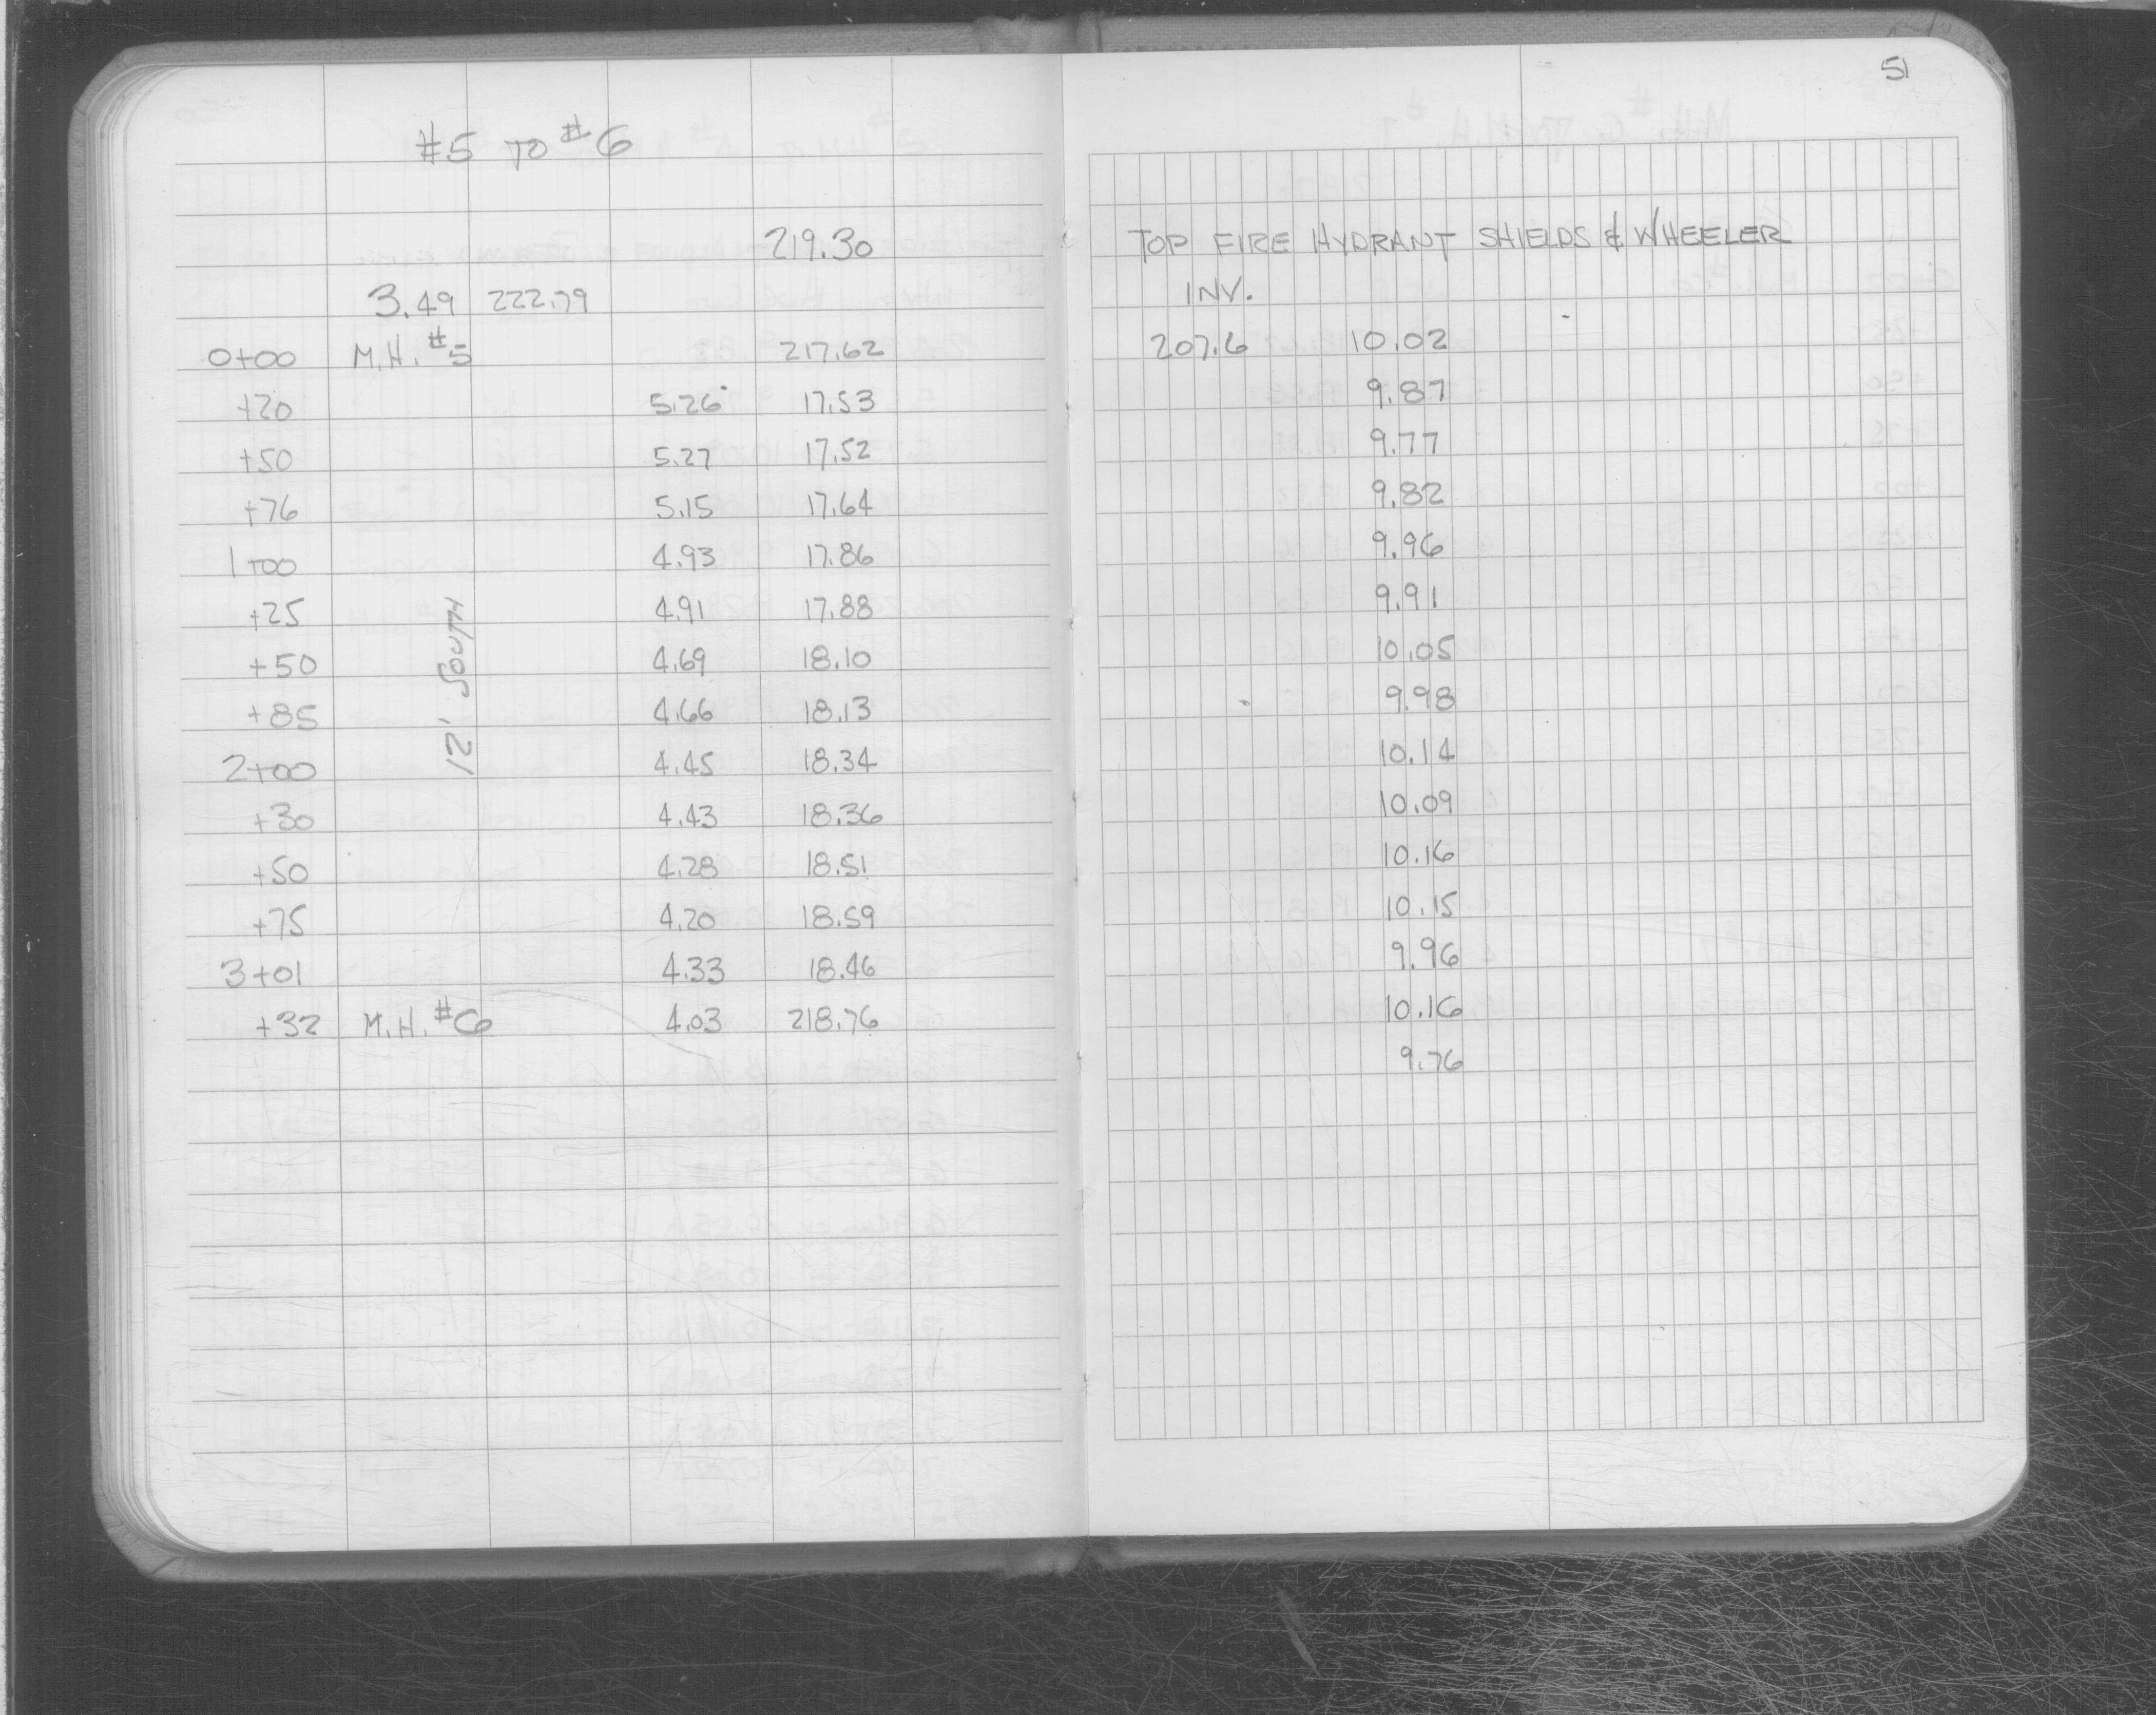 #5 TO #6
219.30
3.49 222.79
0+00 M.H. #5 217.62
+20 5.26 17.53
+50 5.27 17.52
+76 5.15 17.64
1+00 4.93 17.86
+25 4.91 17.88
+50 4.69 18.10
+85 4.66 18.13
2+00 4.45 18.34
+30 4.43 18.36
+50 4.28 18.51
+75 4.20 18.59
3+01 4.33 18.46
+32 M.H. #6 4.03 218.76
12' SOUTH
51
TOP FIRE HYDRANT SHIELDS & WHEELER
INV.
207.6 10.02
9.87
9.77
9.82
9.96
9.91
10.05
9.98
10.14
10.09
10.16
10.15
9.96
10.16
9.76